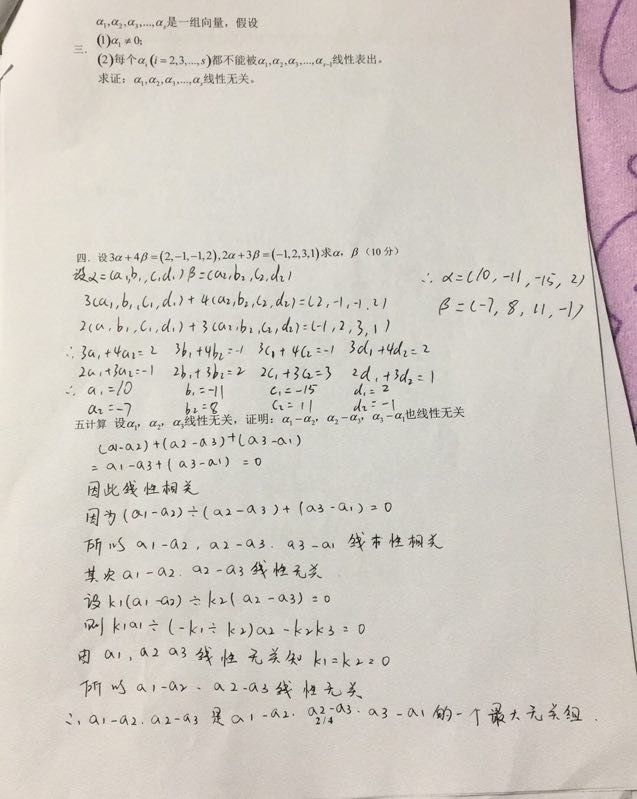 α₁,α₂,α₃,...,αₛ是一组向量，假设
(1)α₁≠0;
三.
(2)每个αᵢ(i=2,3,...,s)都不能被α₁,α₂,α₃,...,αᵢ₋₁线性表出。
求证：α₁,α₂,α₃,...,αₛ线性无关。
四．设3α+4β=(2,-1,-1,2),2α+3β=(-1,2,3,1)求α，β（10分）
设α=(a₁,b₁,c₁,d₁) β=(a₂,b₂,c₂,d₂)
∴ α=(10,-11,-15,2)
3(a₁,b₁,c₁,d₁)+4(a₂,b₂,c₂,d₂)=(2,-1,-1,2)
β=(-7,8,11,-1)
2(a₁b₁,c₁,d₁)+3(a₂,b₂,c₂,d₂)=(-1,2,3,1)
∴3a₁+4a₂=2 3b₁+4b₂=-1 3c₁+4c₂=-1 3d₁+4d₂=2
2a₁+3a₂=-1 2b₁+3b₂=2 2c₁+3c₂=3 2d₁+3d₂=1
∴ a₁=10 b₁=-11 c₁=-15 d₁=2
a₂=-7 b₂=8 c₂=11 d₂=-1
五计算 设α₁，α₂，α₃线性无关，证明：α₁-α₂，α₂-α₃，α₃-α₁也线性无关
(a1-a2)+(a2-a3)+(a3-a1)
=a1-a3+(a3-a1)=0
因此线性相关
因为(a1-a2)÷(a2-a3)+(a3-a1)=0
所以a1-a2，a2-a3．a3-a1 线本性相关
其次a1-a2．a2-a3线性无关
设k1(a1-a2)÷k2(a2-a3)=0
则k1a1÷(-k1÷k2)a2-k2k3=0
由a1，a2 a3 线性无关知k1=k2=0
所以a1-a2、a2-a3线性无关
∴a1-a2．a2-a3 是a1-a2．a2-a3．a3-a1的一个最大无关组．
2/4